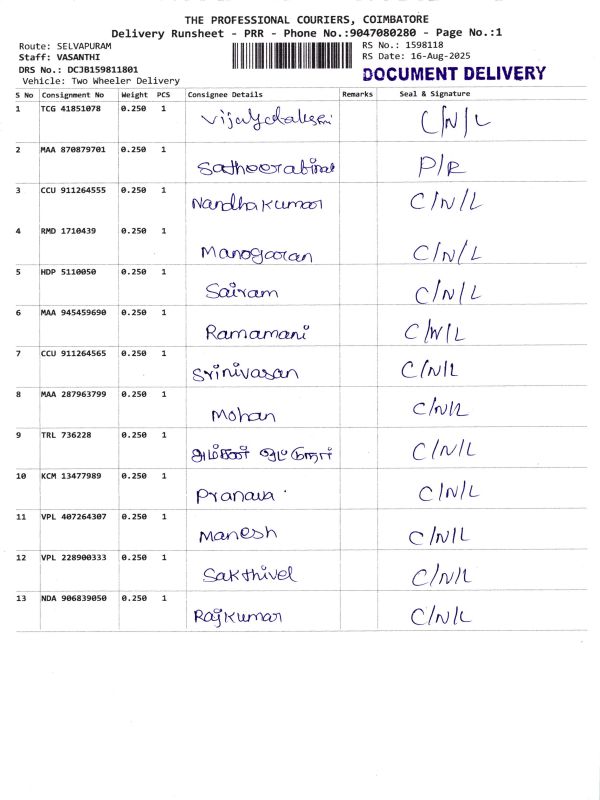 THE PROFESSIONAL COURIERS, COIMBATORE
Delivery Runsheet - PRR - Phone No.:9047080280 - Page No.:1
Route: SELVAPURAM
Staff: VASANTHI
DRS No.: DCJB159811801
Vehicle: Two Wheeler Delivery
RS No.: 1598118
RS Date: 16-Aug-2025
DOCUMENT DELIVERY
S No Consignment No Weight PCS Consignee Details Remarks Seal & Signature
1 TCG 41851078 0.250 1 C/N/L
2 MAA 870879701 0.250 1 P/R
3 CCU 911264555 0.250 1 Nandhakumar C/N/L
4 RMD 1710439 0.250 1 Manogaran C/N/L
5 HDP 5110050 0.250 1 Sairam C/N/L
6 MAA 945459690 0.250 1 Ramamani C/N/L
7 CCU 911264565 0.250 1 Srinivasan C/N/L
8 MAA 287963799 0.250 1 Mohan C/N/L
9 TRL 736228 0.250 1 C/N/L
10 KCM 13477989 0.250 1 Pranava C/N/L
11 VPL 407264307 0.250 1 Manesh C/N/L
12 VPL 228900333 0.250 1 Sakthivel C/N/L
13 NDA 906839050 0.250 1 Rajkumar C/N/L